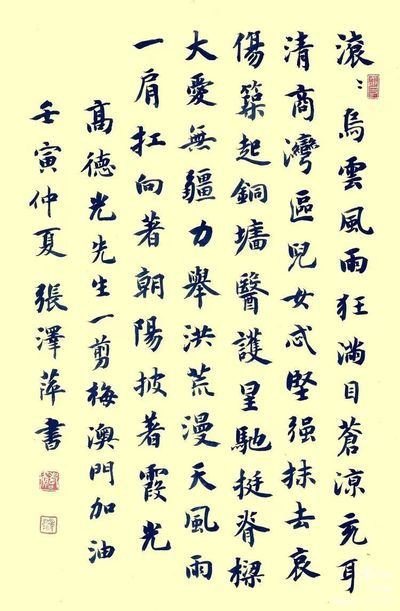 滾滾烏雲風雨狂滿目蒼涼充耳
清商灣區兒女志堅强抹去哀
傷築起銅墻醫護星馳挺脊樑
大愛無疆力舉洪荒漫天風雨
一肩扛向著朝陽披著霞光
高德光先生一剪梅澳門加油
壬寅仲夏張澤萍書